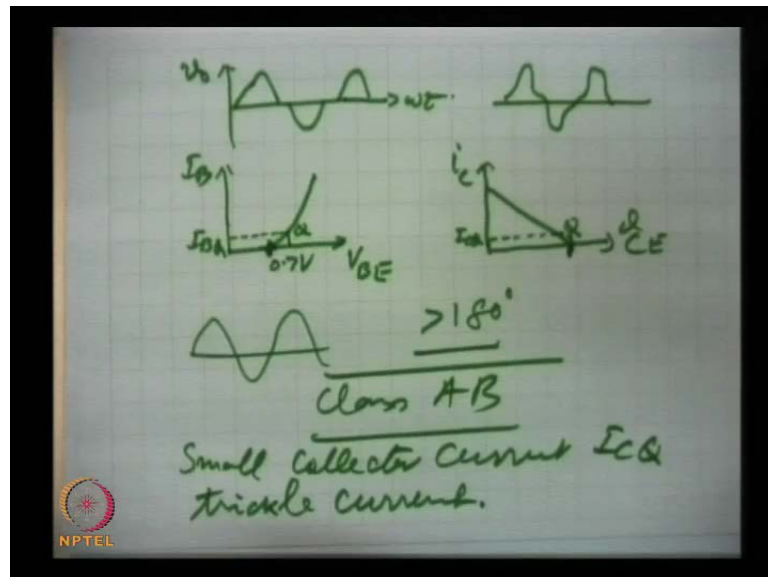 v₀
ωt
I_B
I_BQ
Q
0.7V
V_BE
i_c
I_CQ
Q
v_CE
>180°
Class AB
Small Collector Current I_CQ
trickle current.
NPTEL